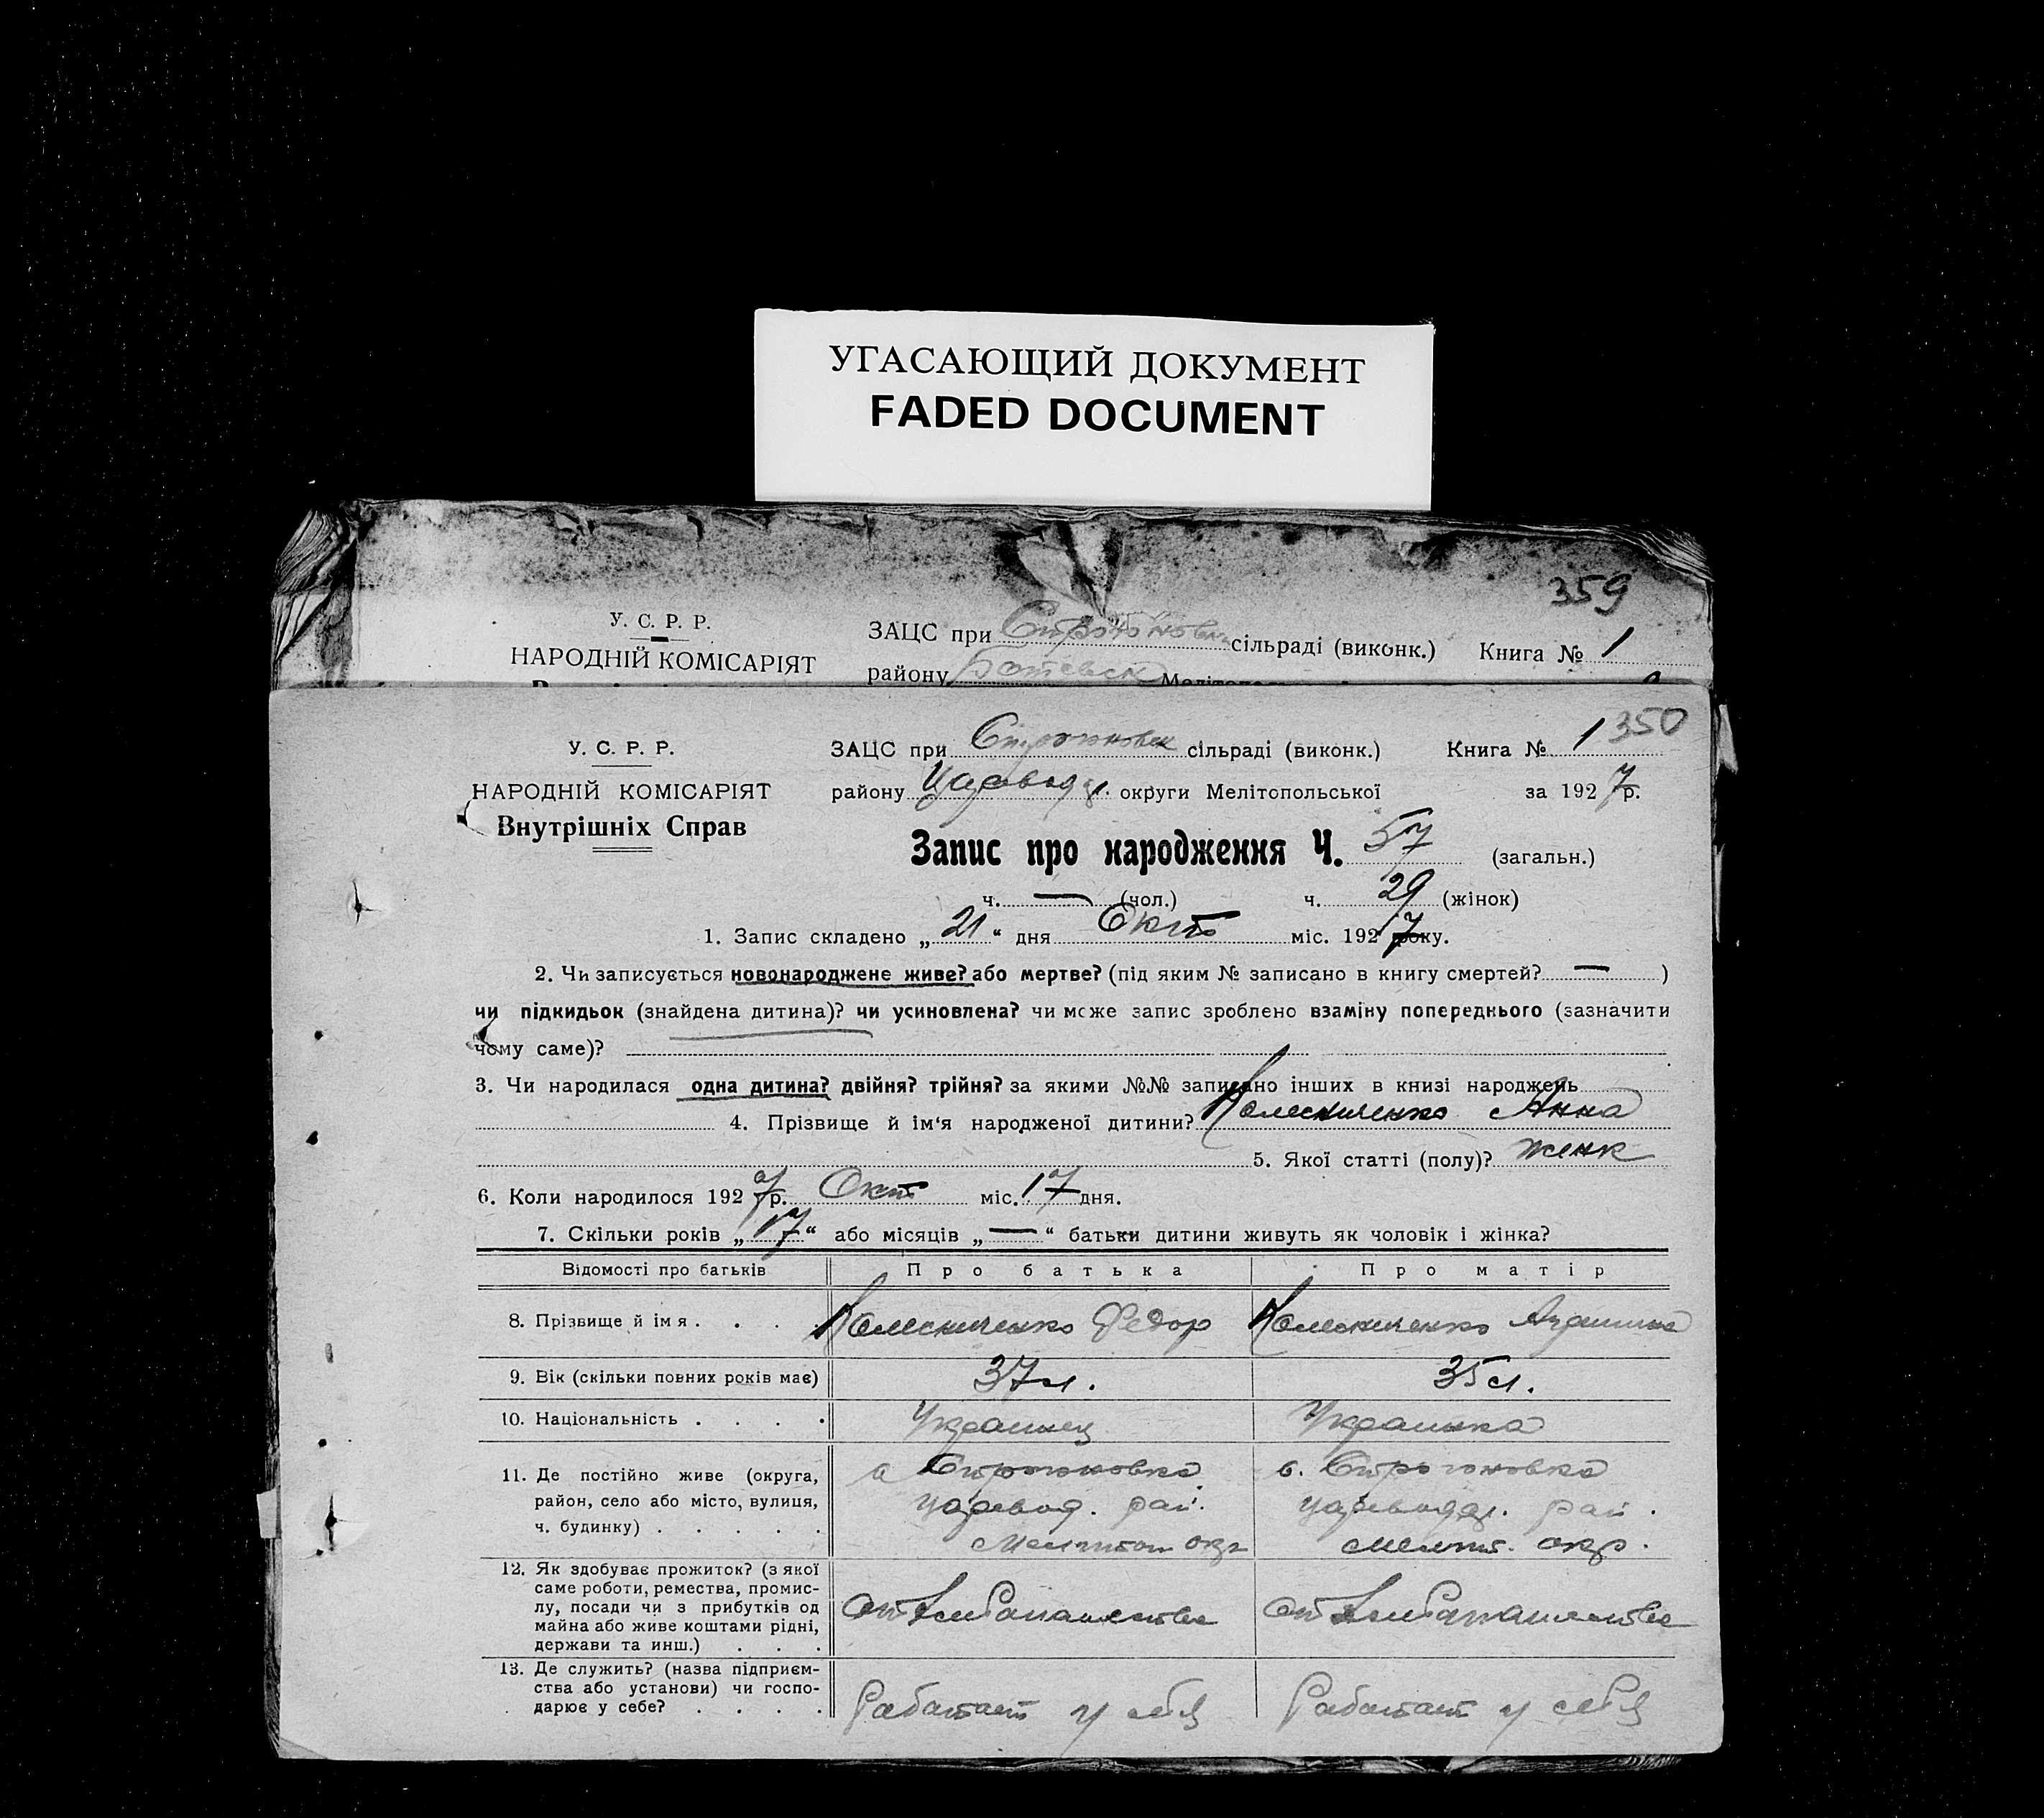 УГАСАЮЩИЙ ДОКУМЕНТ
FADED DOCUMENT
359
У. С. Р. Р.
НАРОДНІЙ КОМІСАРІЯТ
ЗАЦС при сільраді (виконк.) Книга № 1
району
350
У. С. Р. Р.
НАРОДНІЙ КОМІСАРІЯТ
Внутрішніх Справ
ЗАЦС при сільраді (виконк.) Книга № 1
району округи Мелітопольської за 1927 р.
Запис про народження Ч. 57 (загальн.)
ч. — (чол.) ч. 29 (жінок)
1. Запис складено „21“ дня Окт міс. 1927 року.
2. Чи записується новонароджене живе? або мертве? (під яким № записано в книгу смертей? — )
чи підкидьок (знайдена дитина)? чи усиновлена? чи може запис зроблено взаміну попереднього (зазначити
чому саме)?
3. Чи народилася одна дитина? двійня? трійня? за якими №№ записано інших в книзі народжень
4. Прізвище й ім'я народженої дитини? Колесниченко Анна
5. Якої статті (полу)? женк
6. Коли народилося 1927 р. Окт міс. 17 дня.
7. Скільки років „17“ або місяців „—“ батьки дитини живуть як чоловік і жінка?
Відомості про батьків Про батька Про матір
8. Прізвище й імя . . . . Колесниченко Федор Колесниченко
9. Вік (скільки повних років має) 37 л. 35 л.
10. Національність . . . . Украинец Украинка
11. Де постійно живе (округа,
район, село або місто, вулиця,
ч. будинку) . . . . .
с. Строгоновка
Царевод. рай.
Мелитоп окр
с. Строгоновка
рай.
Мелит. окр.
12. Як здобуває прожиток? (з якої
саме роботи, ремества, промис-
лу, посади чи з прибутків од
майна або живе коштами рідні,
держави та инш.) . . .
от хлебопашества
от хлебопашества
13. Де служить? (назва підприєм-
ства або установи) чи госпо-
дарює у себе? . . . .
Работает у себя
Работает у себя